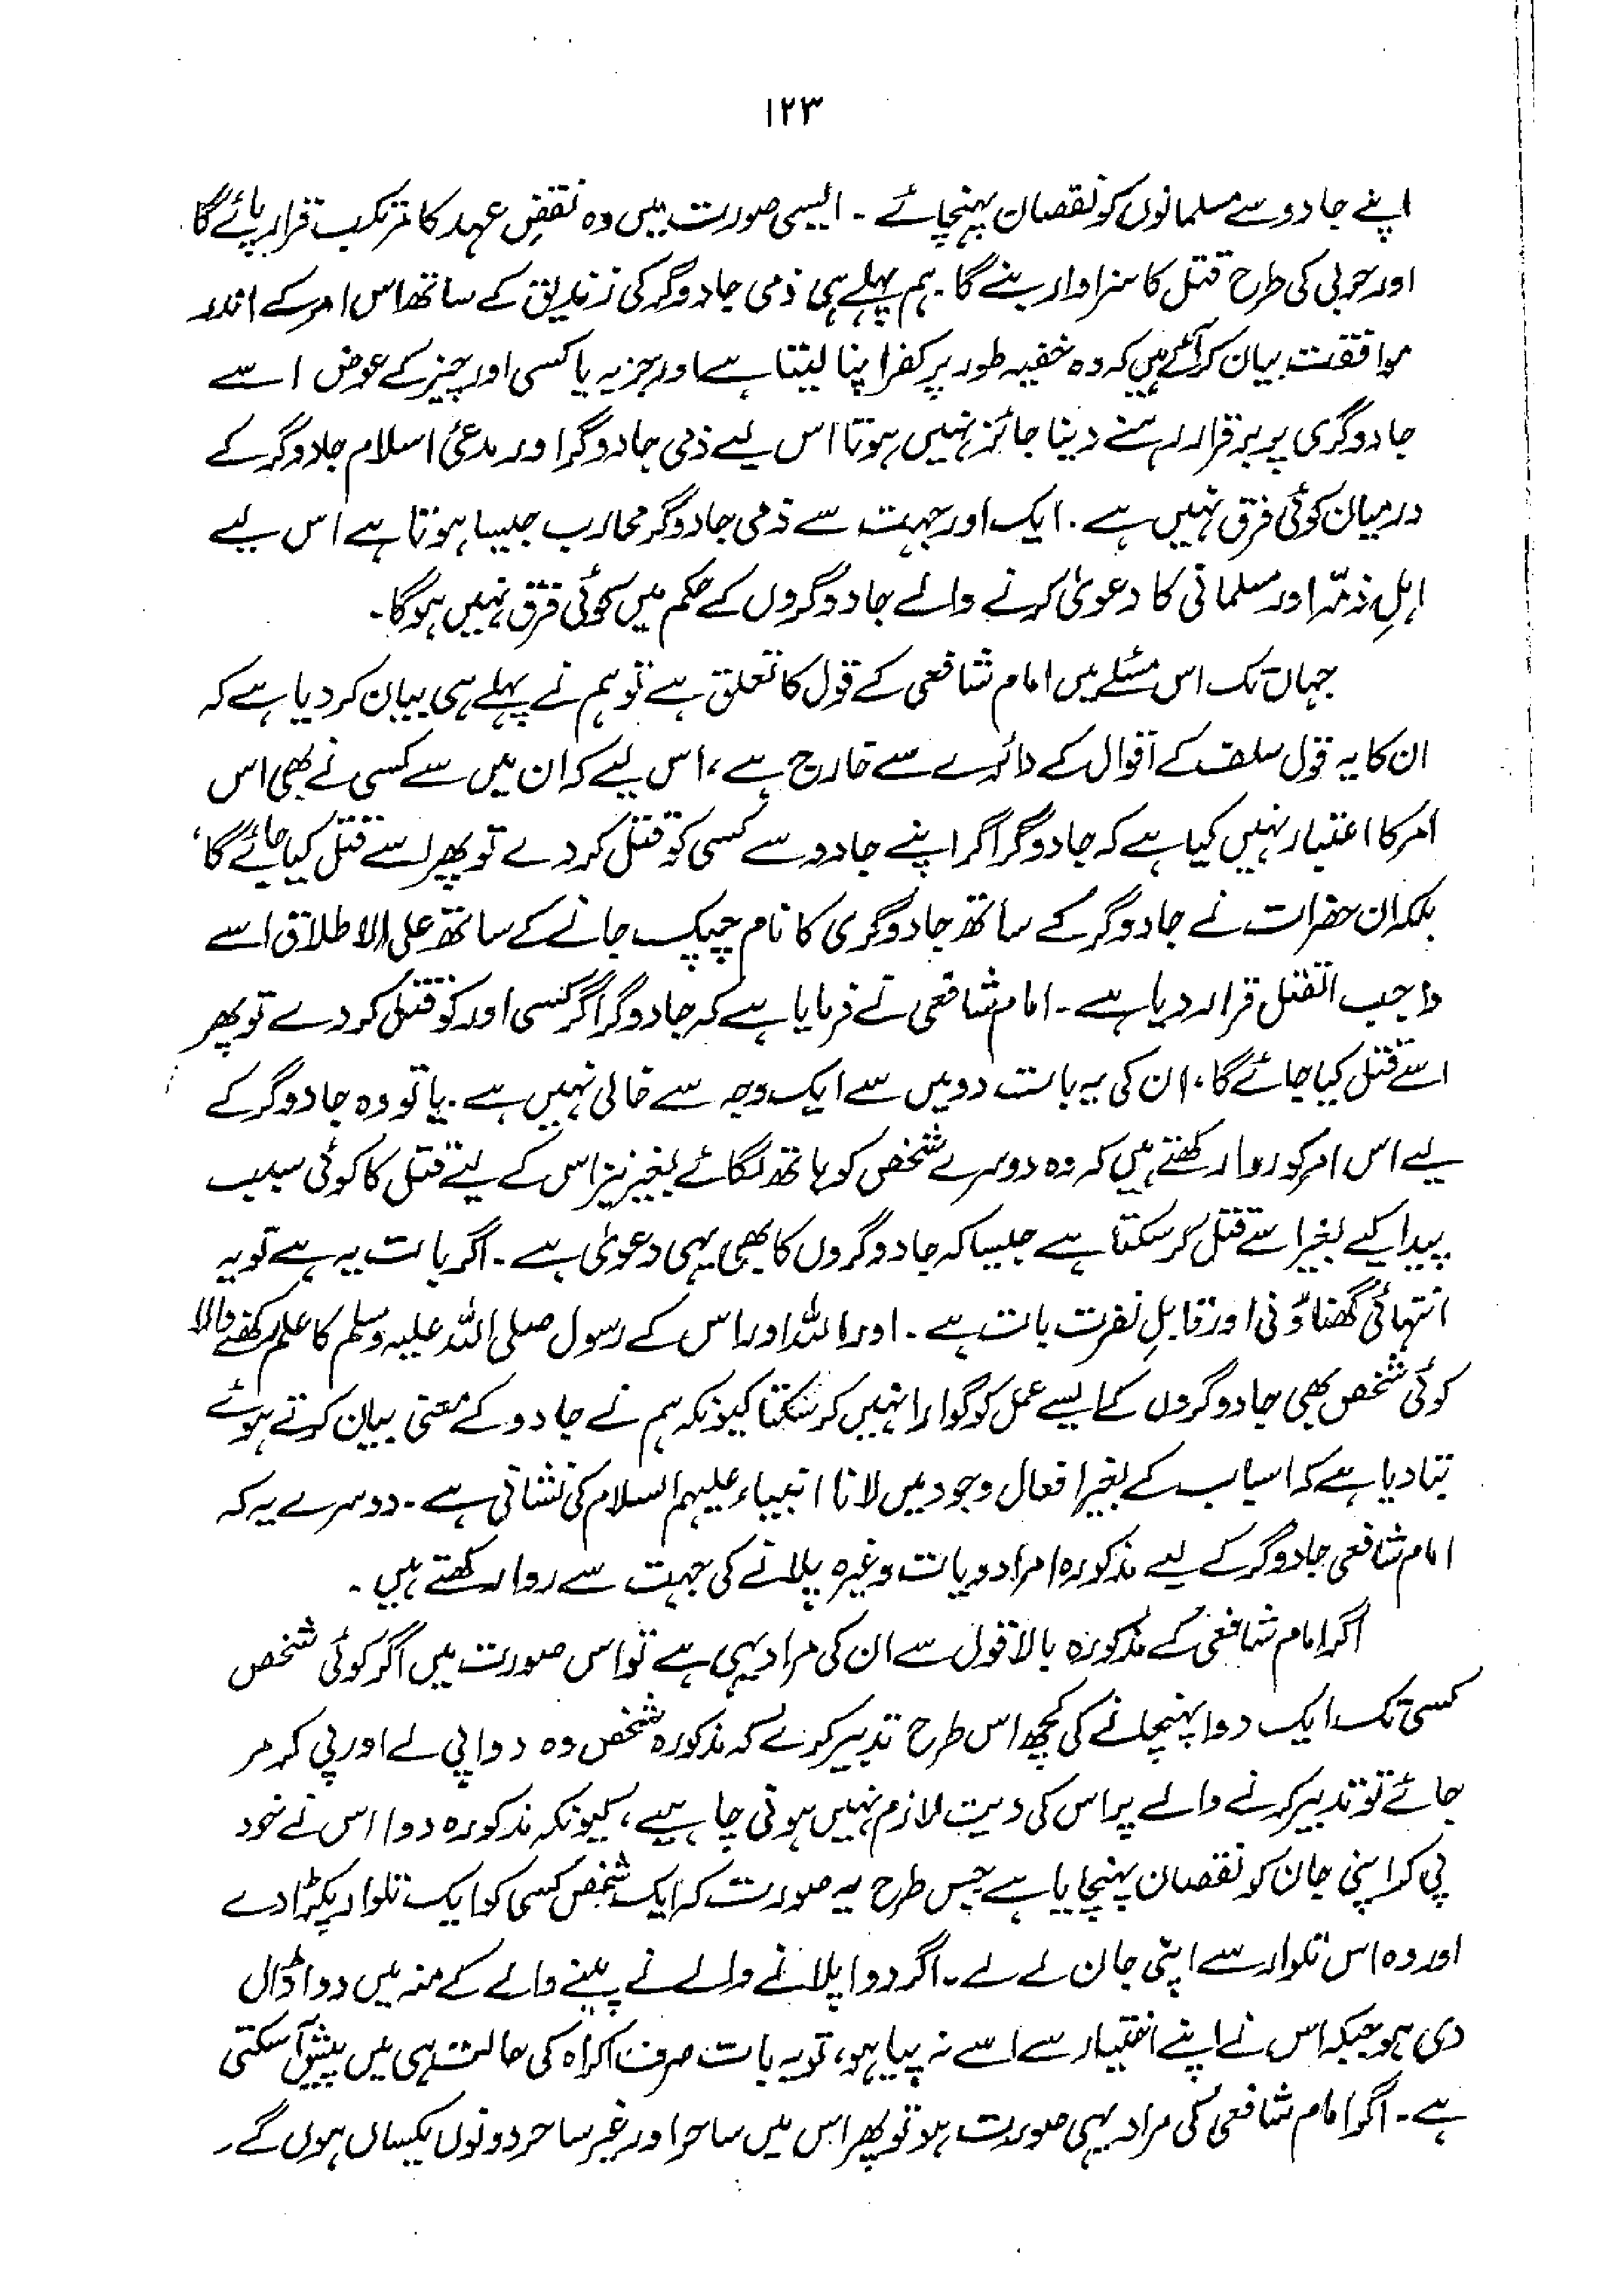 ۱۲۳
اپنے جادو سے مسلمانوں کو نقصان پہنچائے ۔ ایسی صورت میں وہ نقضِ عہد کا مرتکب قرار پائے گا
اور حربی کی طرح قتل کا سزاوار بنے گا ۔ ہم پہلے ہی ذمی جادوگر کی زندیق کے ساتھ اس امر کے اندر
موافقت بیان کر آئے ہیں کہ وہ خفیہ طور پر کفر اپنا لیتا ہے اور جزیہ یا کسی اور چیز کے عوض اسے
جادوگری پر برقرار رہنے دینا جائز نہیں ہوتا اس لیے ذمی جادوگر اور مدعئ اسلام جادوگر کے
درمیان کوئی فرق نہیں ہے ۔ ایک اور جہت سے ذمی جادوگر محارب جیسا ہوتا ہے اس لیے
اہلِ ذمّہ اور مسلمانی کا دعویٰ کرنے والے جادوگروں کے حکم میں کوئی فرق نہیں ہوگا ۔
جہاں تک اس مسئلے میں امام شافعی کے قول کا تعلق ہے تو ہم نے پہلے ہی بیان کر دیا ہے کہ
ان کا یہ قول سلف کے اقوال کے دائرے سے خارج ہے ، اس لیے کہ ان میں سے کسی نے بھی اس
امر کا اعتبار نہیں کیا ہے کہ جادوگر اگر اپنے جادو سے کسی کو قتل کر دے تو پھر اسے قتل کیا جائے گا ،
بلکہ ان حضرات نے جادوگر کے ساتھ جادوگری کا نام چپک جانے کے ساتھ علی الاطلاق اسے
واجب القتل قرار دیا ہے ۔ امام شافعی نے فرمایا ہے کہ جادوگر اگر کسی اور کو قتل کر دے تو پھر
اسے قتل کیا جائے گا ، ان کی یہ بات دو میں سے ایک وجہ سے خالی نہیں ہے ۔ یا تو وہ جادوگر کے
لیے اس امر کو روا رکھتے ہیں کہ وہ دوسرے شخص کو ہاتھ لگائے بغیر نیز اس کے لیے قتل کا کوئی سبب
پیدا کیے بغیر اسے قتل کر سکتا ہے جیسا کہ جادوگروں کا بھی یہی دعویٰ ہے ۔ اگر بات یہ ہے تو یہ
انتہائی گھناؤنی اور قابلِ نفرت بات ہے ۔ اور اللہ اور اس کے رسول صلی اللہ علیہ وسلم کا علم رکھنے والا
کوئی شخص بھی جادوگروں کے ایسے عمل کو گوارا نہیں کر سکتا کیونکہ ہم نے جادو کے معنی بیان کرتے ہوئے
بتا دیا ہے کہ اسباب کے بغیر افعال وجود میں لانا انبیاء علیہم السلام کی نشانی ہے ۔ دوسرے یہ کہ
امام شافعی جادوگر کے لیے مذکورہ امر ادویات وغیرہ پلانے کی جہت سے روا رکھتے ہیں ۔
اگر امام شافعی کے مذکورہ بالا قول سے ان کی مراد یہی ہے تو اس صورت میں اگر کوئی شخص
کسی تک ایک دوا پہنچانے کی کچھ اس طرح تدبیر کرے کہ مذکورہ شخص وہ دوا پی لے اور پی کر مر
جائے تو تدبیر کرنے والے پر اس کی دیت لازم نہیں ہونی چاہیے ، کیونکہ مذکورہ دوا اس نے خود
پی کر اپنی جان کو نقصان پہنچایا ہے جس طرح یہ صورت کہ ایک شخص کسی کو ایک تلوار پکڑا دے
اور وہ اس تلوار سے اپنی جان لے لے ۔ اگر دوا پلانے والے نے پینے والے کے منہ میں دوا ڈال
دی ہو جبکہ اس نے اپنے اختیار سے اسے نہ پیا ہو ، تو یہ بات صرف اکراہ کی حالت ہی میں پیش آ سکتی
ہے ۔ اگر امام شافعی کی مراد یہی صورت ہو تو پھر اس میں ساحر اور غیر ساحر دونوں یکساں ہوں گے ۔